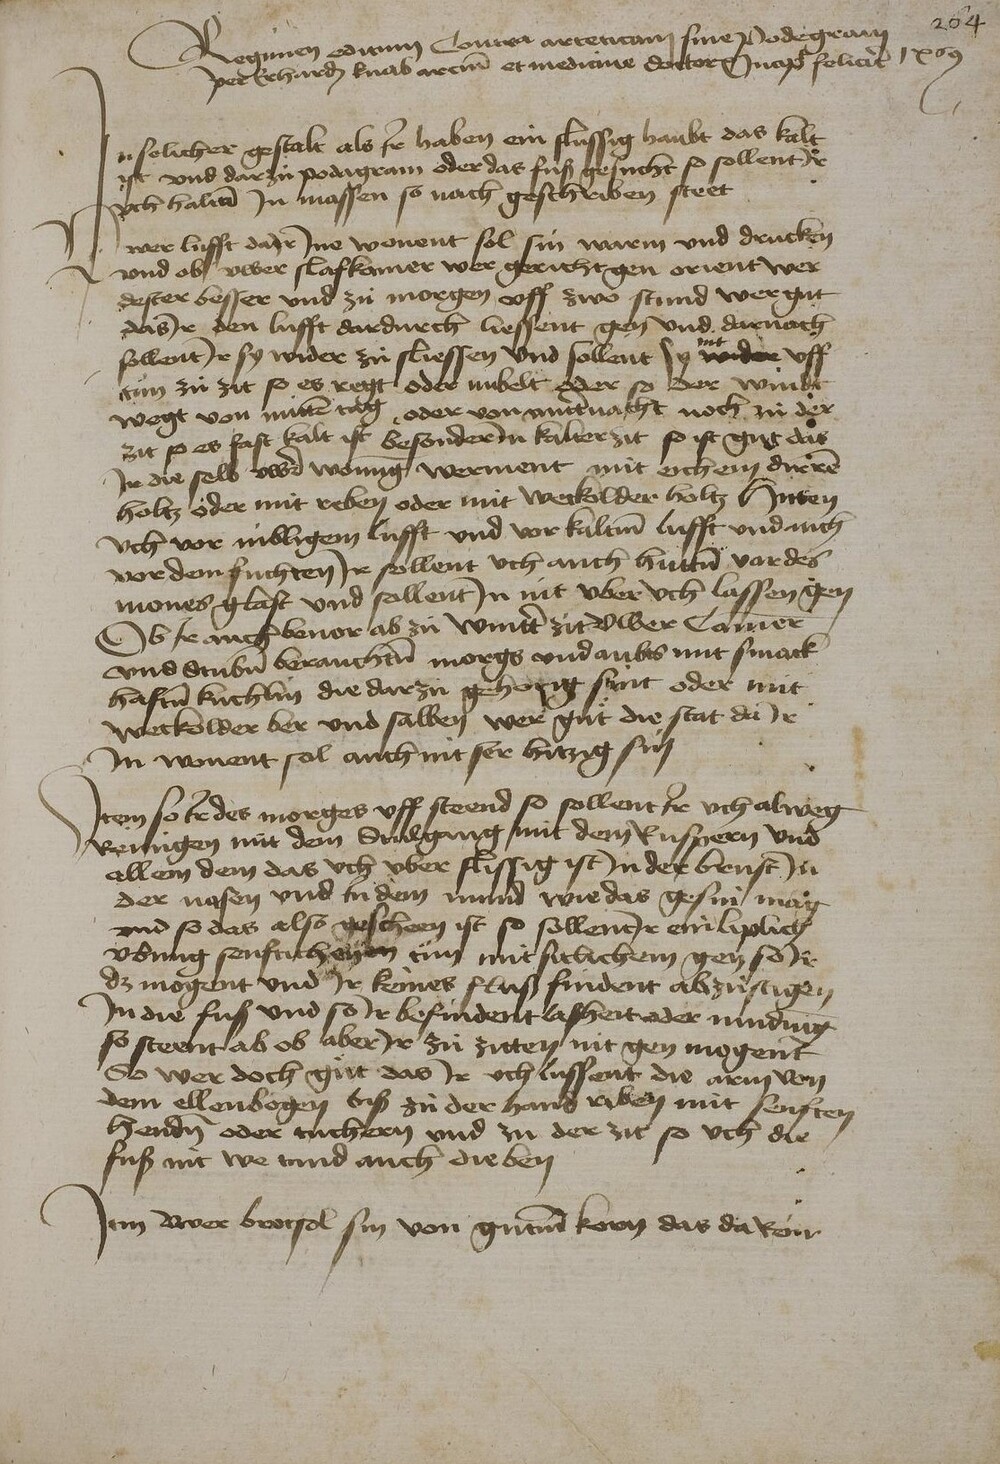 264
Regimen editum Contra arteticam siue Podegram
per Erhardum knab arcium et medicine doctorem Incipit feliciter
In solicher gestalt als Ir haben ein flussig haubt das kalt
ist vnd darzu podagram oder das fuß gesucht so sollent Ir
vch halten In massen so nach geschriben steet
Uwer lufft da Ir Inne wonent sol sin warm vnd drucken
vnd ob vwer slafkamer wer gericht gen orient wer
dester besser vnd zu morgen vff zwo stund wer gut
das Ir den lufft dardurch liessent gen vnd darnach
sollent Ir sy wider zu sliessen vnd sollent sy nit vff
tun zu zit so es regt oder nibelt oder so der windt
wegt von mittem tag oder von mitternacht noch zu der
zit so es fast kalt ist besonder In kalter zit so ist gut das
Ir die selb vwer wonung werment mit eichem durrem
holtz oder mit reben oder mit weckolder holtz Hutten
vch vor nibligem lufft vnd vor kaltem lufft vnd auch
vor dem fuchten Ir sollent vch auch hutten vor des
mones glast vnd sollent In nit vber vch lassen gen
Ob Ir auch beuor ab zu winter zit Vwer Camer
vnd Stuben berauchten morgs vnd aubts mit smack
haften kuchlin die darzu gehorig sint oder mit
weckolder ber vnd salben wer gut die stat da Ir
In wonent sol auch nit ser hitzig sin
Item so Ir des morges vff steend so sollent Ir vch alweg
Reinigen mit dem Stulgang mit dem Ruspern vnd
allem dem das vch vber flissig ist In der brust In
der nasen vnd In dem mund wie das gesin mag
vnd so das also gescheen ist so sollent Ir ein liplich
vbung senftiklichen tun mit sitlichem gen so Ir
dz mogent vnd Ir keines fluß findent abzustigen
In die fuß vnd so Ir befindent laßheit oder mudung
so steent ab ob aber Ir zu zitten nit gen mogent
So wer doch gut das Ir vch liessent die arm von
dem ellenbogen biß zu der hand riben mit senften
henden oder tuchern vnd zu der zit so vch die
fuß nit we tund auch die ben
Item Vwer brot sol sin von gutem korn das da Rein